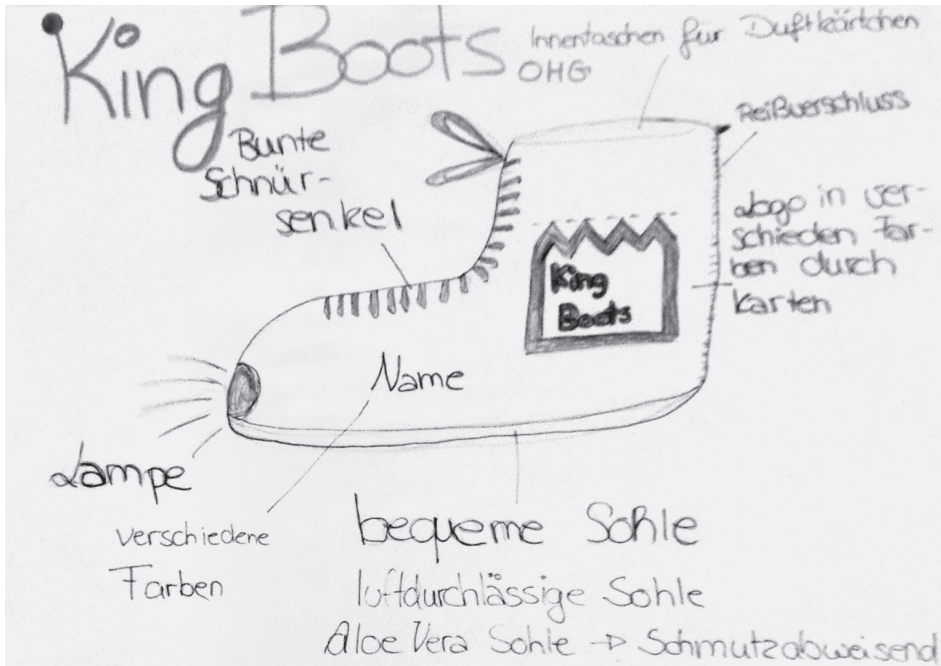 King Boots
OHG
Innentaschen für Duftkärtchen
Reißverschluss
Bunte
Schnür-
senkel
Logo in ver-
schieden Far-
ben durch
Karten
King
Boots
Name
Lampe
verschiedene
Farben
bequeme Sohle
luftdurchlässige Sohle
Aloe Vera Sohle → Schmutzabweisend